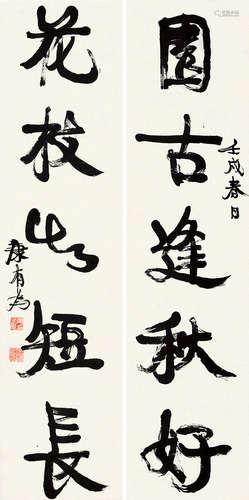 壬戌春日
園古逢秋好
花枝短長
康有為